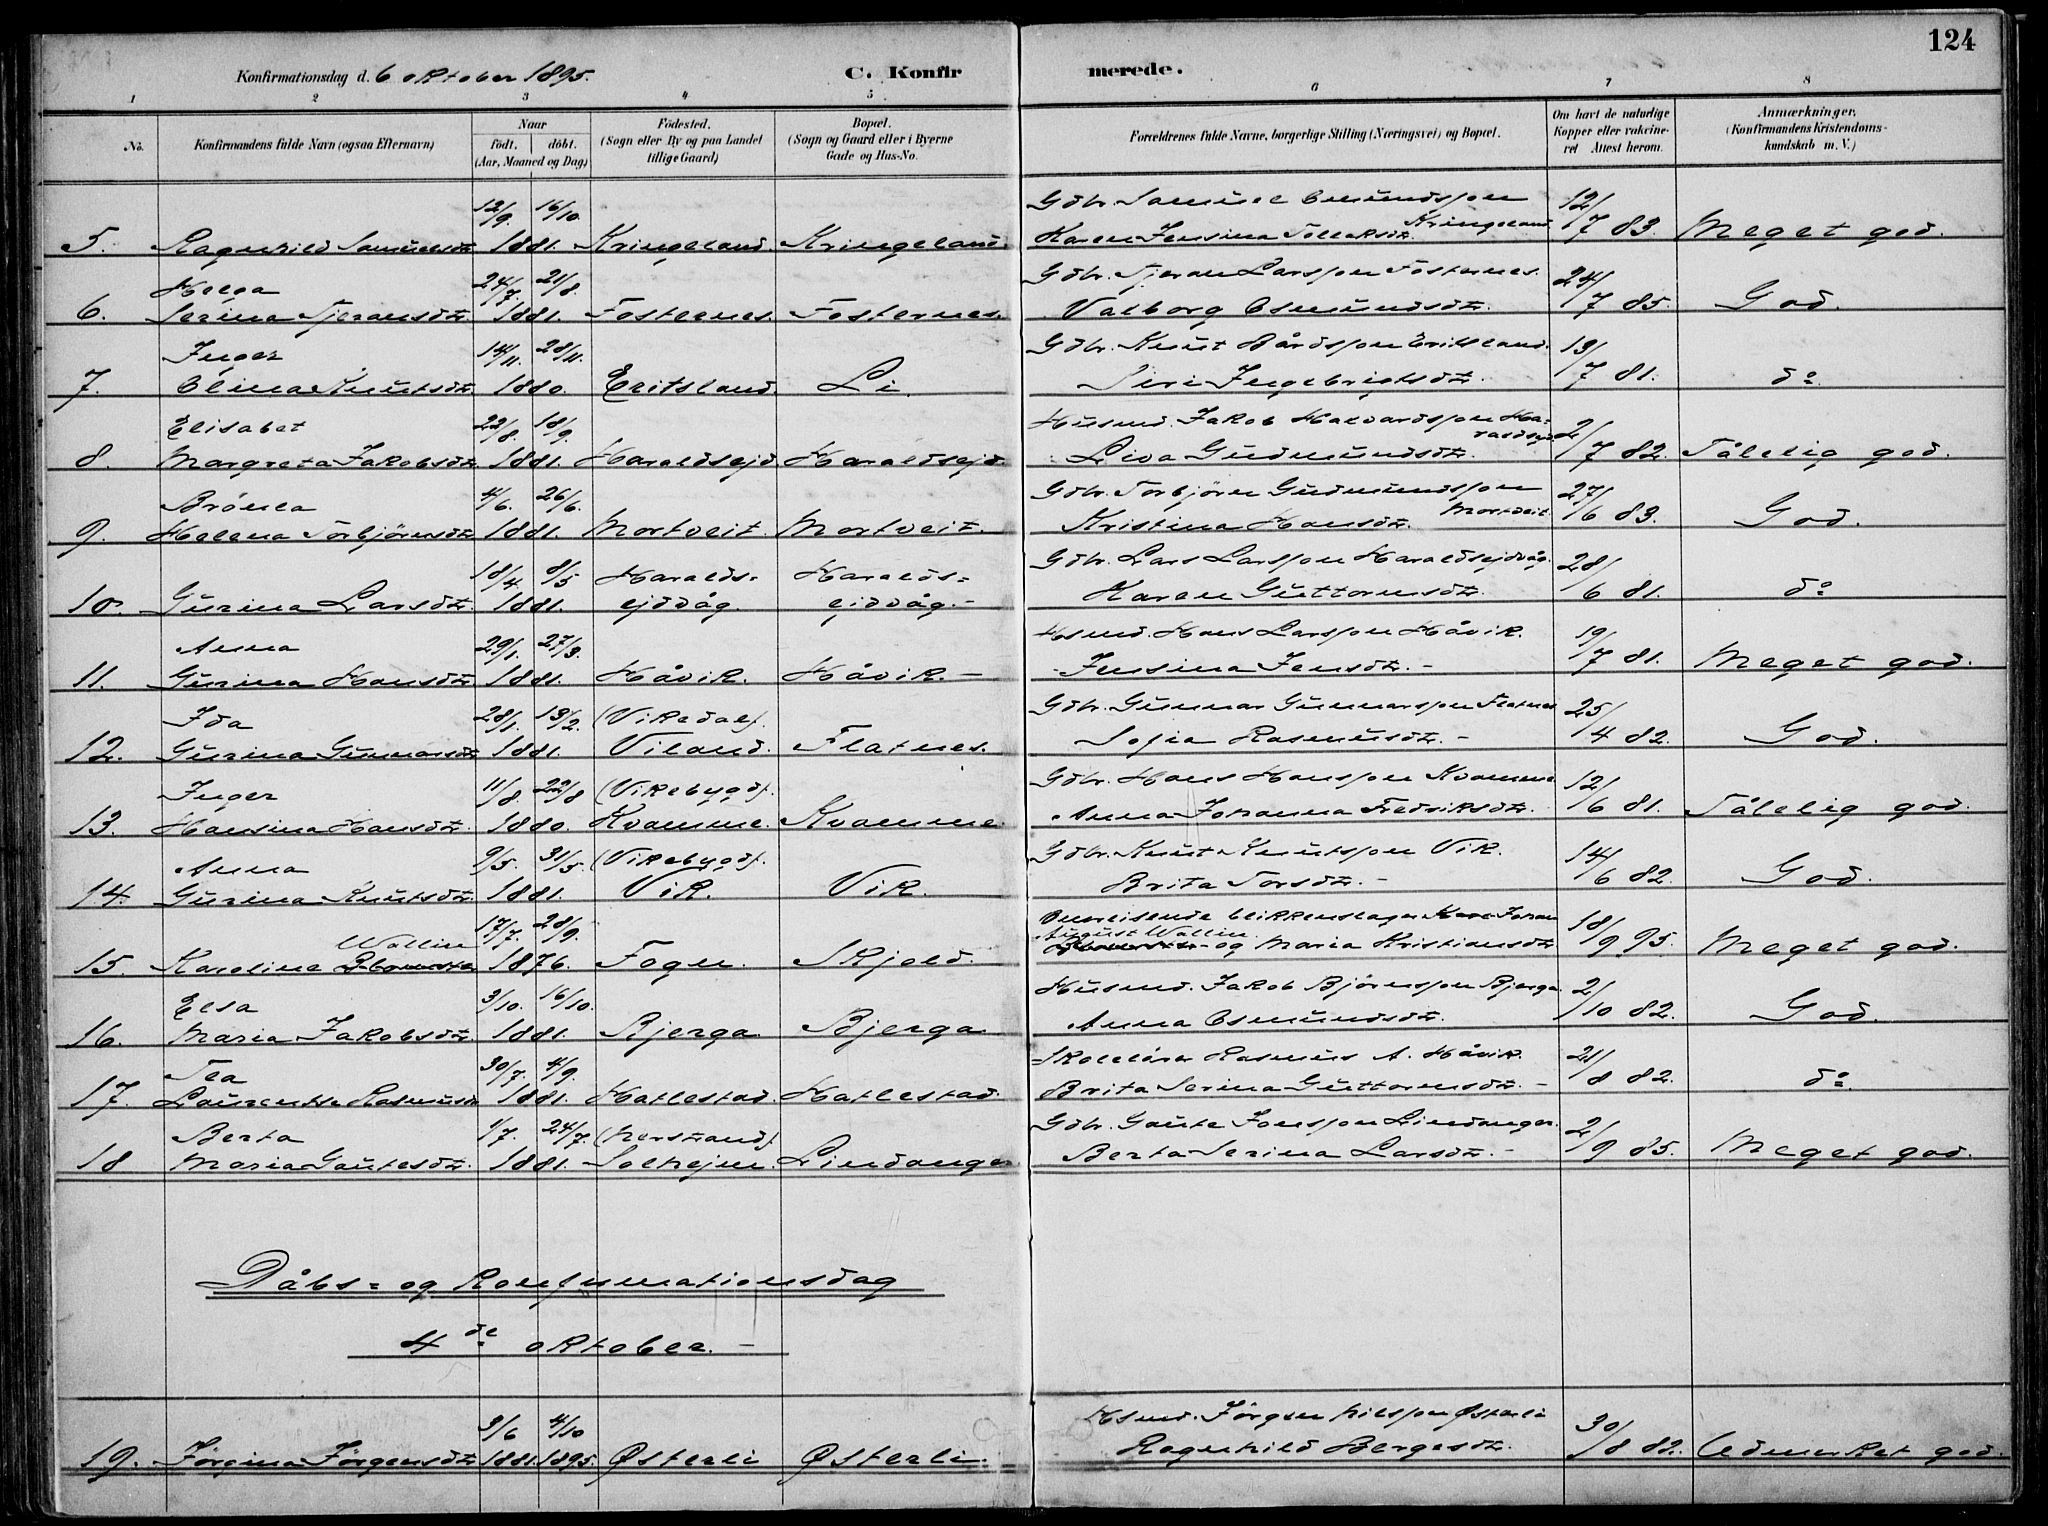 124
Konfirmationsdag d. 6 oktober 1895. C. Konfirmerede.
1 2 3 4 5 6 7 8
No. Konfirmandens fulde Navn (ogsaa Efternavn) Naar født. døbt. (Aar, Maaned og Dag) Fødested. (Sogn eller By og paa Landet tillige Gaard) Bopæl. (Sogn og Gaard eller i Byerne Gade og Hus-No. Forældrenes fulde Navne, borgerlige Stilling (Næringsvei) og Bopæl. Om havt de naturlige Kopper eller vakcineret Attest herom. Anmærkninger. (Konfirmandens Kristendomskundskab m. V.)
12/9. 16/10. Gdbr. Samuel Osmundsson 12/
5. Ragnhild Samuelsdtr. 1881. Kringeland. Kringeland. Karen Jensina Tollaksdtr. Kringeland 7 83. Meget god.
Helga 24/7. 21/8. Gdbr. Tjeran Larsson Fosternes. 24/
6. Serina Tjeransdtr. 1881. Fosternes. Fosternes. Valborg Osmundsdtr. 7 85. God.
Inger 14/11. 28/11. Gdbr. Knut Bårdsson Eritsland. 13/
7. Olina Knutsdtr. 1880. Eritsland. Li. Siri Ingebrigtsdtr. 7 81. do.
Elisabet 22/8. 18/9. Husmd. Jakob Halvardsson Ha-
8. Margreta Jakobsdtr. 1881. Haraldsejd. Haraldsejd. Liva Gudmundsdtr. raldsejd 2/7 82. Tålelig god.
Brónla 4/6. 26/6. Gdbr. Torbjörn Gudmundsson 27/
9. Helena Torbjörnsdtr. 1881. Mortveit. Mortveit. Kristina Hansdtr. Mortveit. 6 83. God.
18/4. 8/5 Haralds- Haralds- Gdbr. Lars Larsson Haraldsejdvåg. 28/
10. Gurina Larsdtr. 1881. ejdvåg. ejdvåg. Karen Guttormsdtr. 6 81. do
Anna 29/1. 27/3. Hsmd. Hans Larsson Håvik. 19/
11. Gurina Hansdtr. 1881. Håvik. Håvik. Jensina Jensdtr. 7 81. Meget god.
Ida 28/1. 13/2. (Vikedal). Gdbr. Gunnar Gunnarsson Flatnes 25/
12. Gurina Gunnarsdtr. 1881. Viland. Flatnes. Sofia Rasmusdtr. 4 82. God.
Inger 11/8. 22/8 (Vikebygd). Gdbr. Hans Hansson Kvamme. 12/
13. Hansina Hansdtr. 1880. Kvamme. Kvamme. Anna Johanna Fredriksdtr. 6 81. Tålelig god.
Anna 9/5. 31/5. (Vikebygd). Gdbr. Knut Knutsson Vik. 14/
14. Gurina Knutsdtr. 1881. Vik. Vik. Brita Torsdtr. 6 82. God.
Wallin 17/7. 28/9. Omreisende blikkenslager Johan 18/
15. Karoline 1876. Fogn. Skjold. August Wallin og Maria Kristiansdtr. 9 95. Meget god.
Elsa 3/10. 16/10. Husmd. Jakob Bjørnsson Bjerga. 2/
16. Maria Jakobsdtr. 1881. Bjerga. Bjerga Anna Osmundsdtr. 10 82. God.
Tea 30/7. 4/9. Skolelærer Rasmus A. Håvik. 21/
17. Laurentse Rasmusd. 1881. Hatlestad. Hatlestad. Brita Serina Guttormsdtr. 8 82. do.
Berta 1/7. 24/7. (Nerstrand). Gdbr. Gaute Jonsson Lindanger. 2/
18 Maria Gautesdtr. 1881. Solhejm. Lindanger Berta Serina Larsdtr. 9 85. Meget god.
Dåbs- og Konfirmationsdag
4de oktober.
3/6 4/10 Hsmd. Jörgen Nilsson Østerli 30/
19. Jørgina Jörgensdtr. 1881. 1895. Østerli Østerli. Ragnhild Bergesdtr. 8 82. Udmerket god.